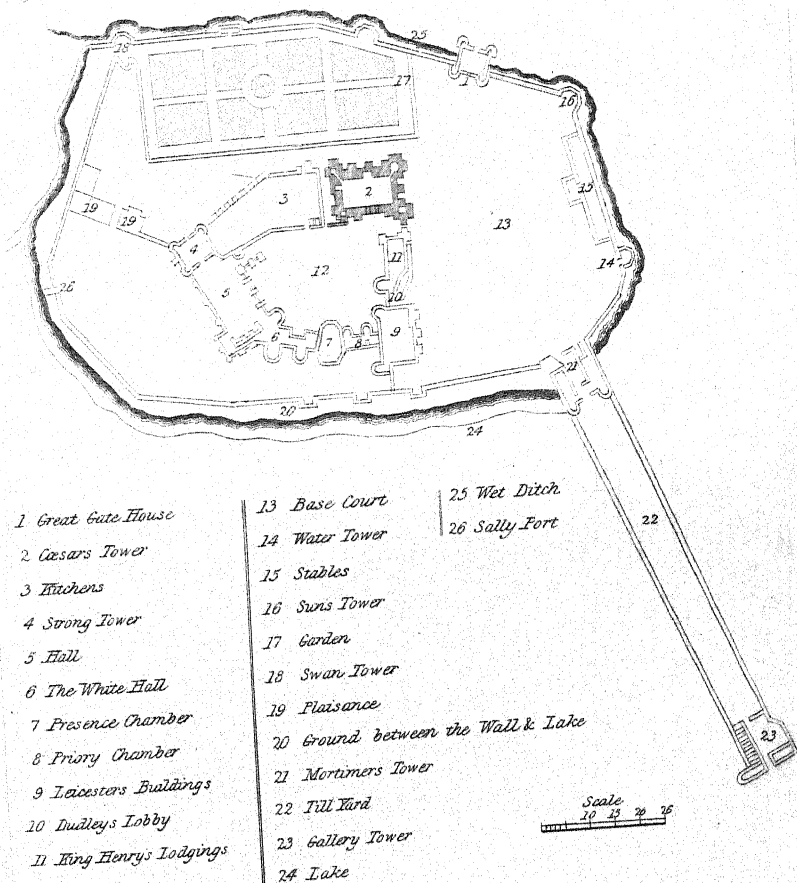 18
25
1
17
16
3
2
15
19
19
4
13
11
14
12
26
5
10
6
7
8
9
21
20
24
22
23
1 Great Gate House
2 Cæsars Tower
3 Kitchens
4 Strong Tower
5 Hall
6 The White Hall
7 Presence Chamber
8 Priory Chamber
9 Leicesters Buildings
10 Dudleys Lobby
11 King Henry's Lodgings
13 Base Court
14 Water Tower
15 Stables
16 Suns Tower
17 Garden
18 Swan Tower
19 Plaisance
20 Ground between the Wall & Lake
21 Mortimers Tower
22 Till Yard
23 Gallery Tower
24 Lake
25 Wet Ditch
26 Sally Port
Scale
10 15 20 25